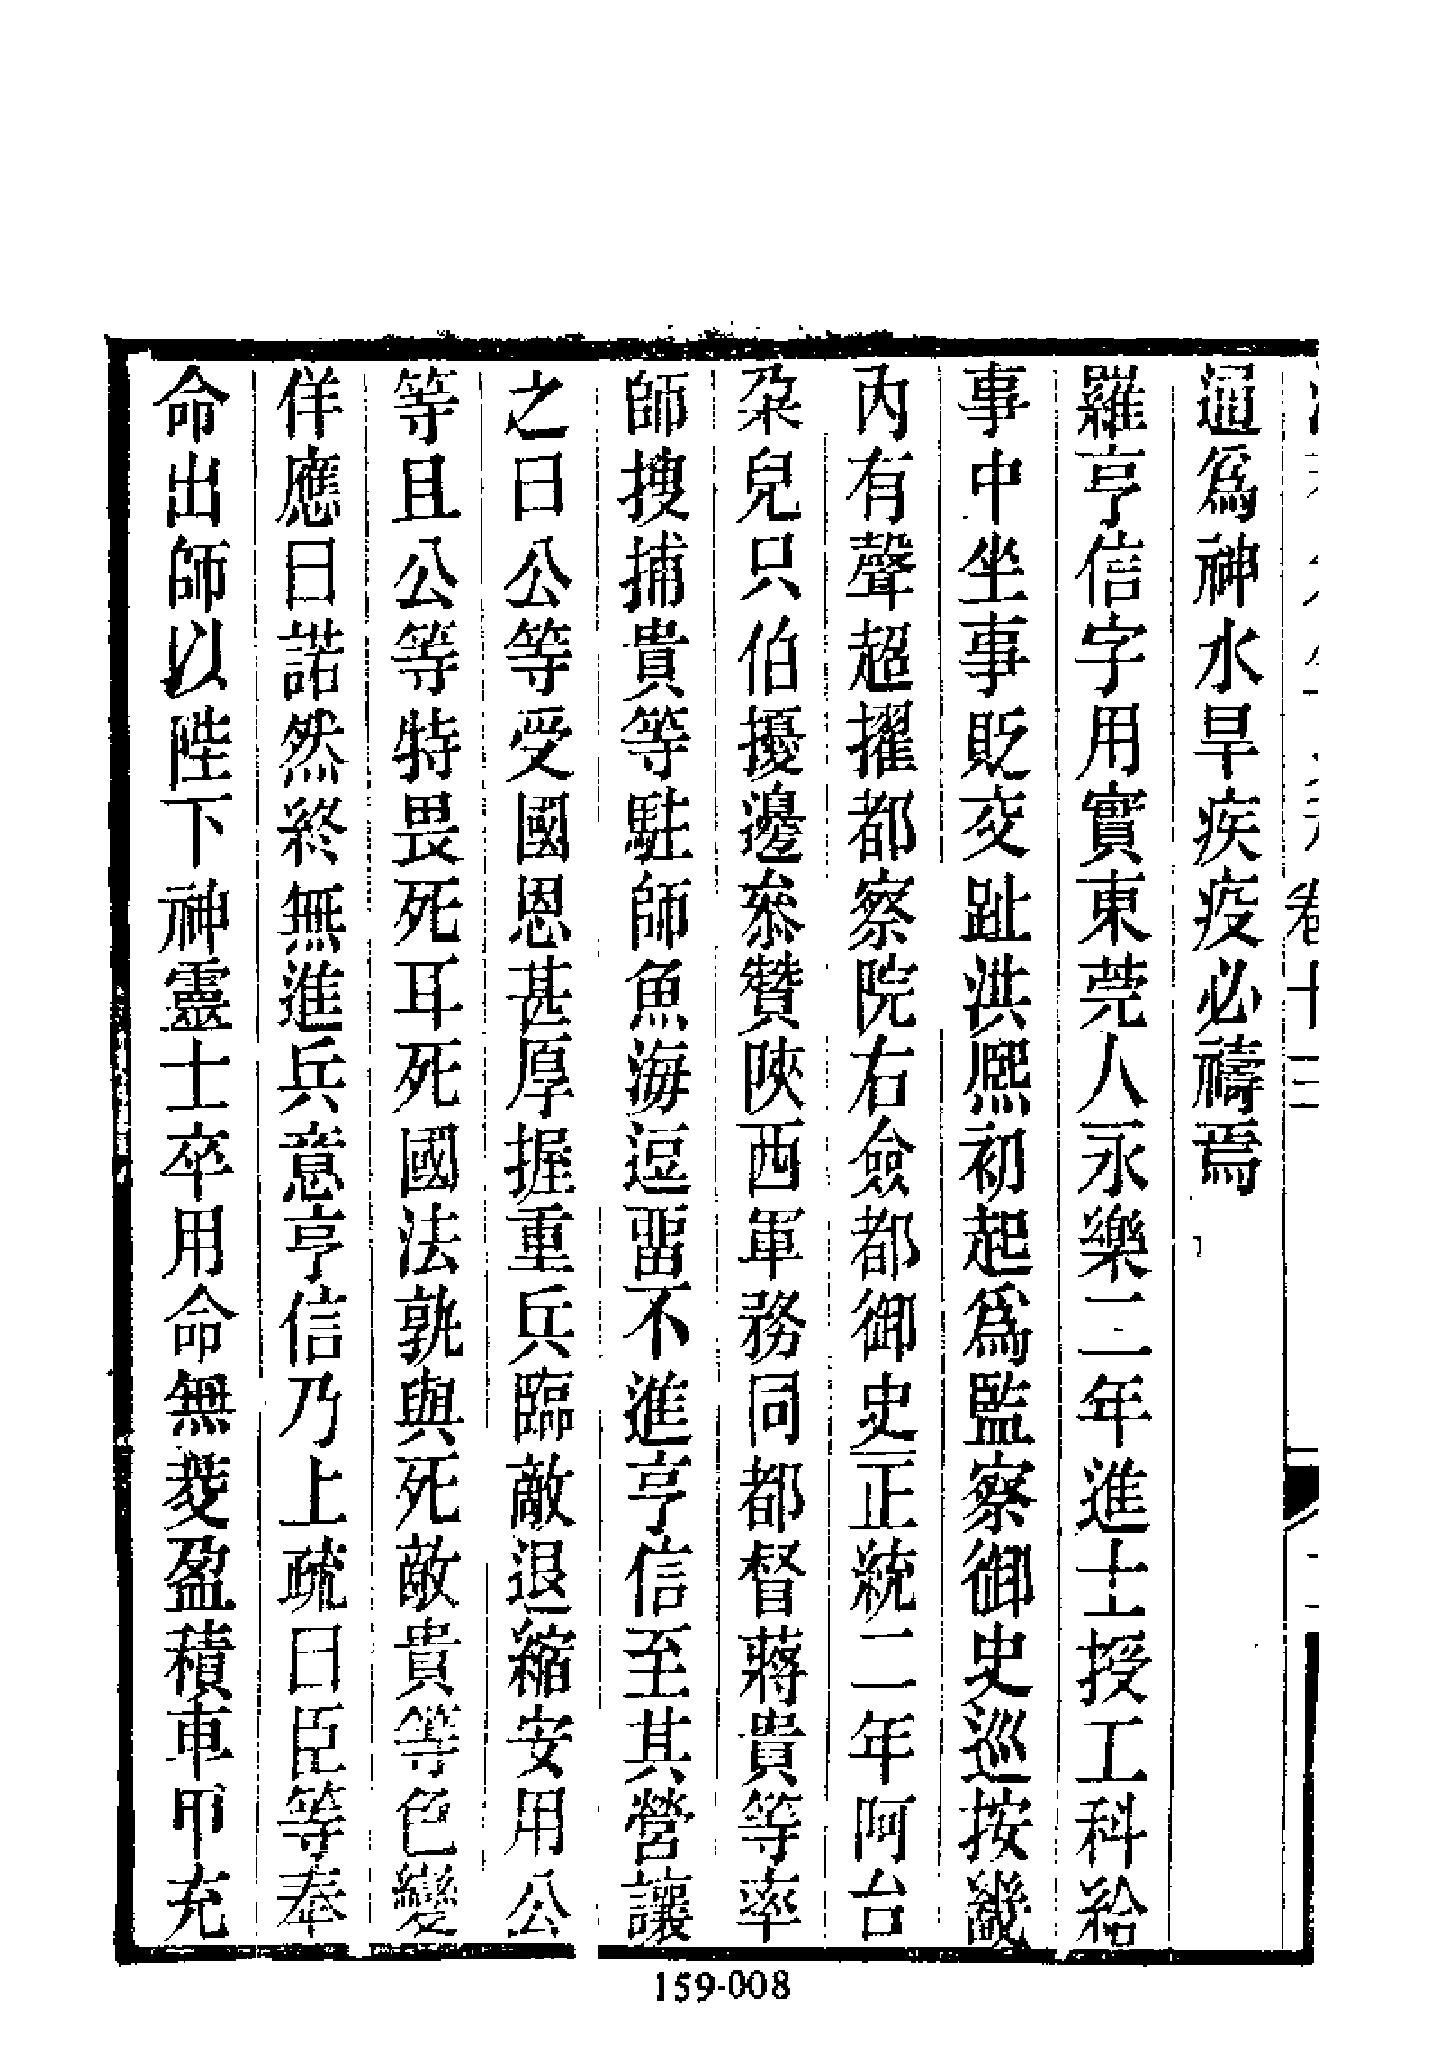 卷十三
通爲神水旱疾疫必禱焉
羅亨信字用實東莞人永樂二年進士授工科給
事中坐事貶交趾洪熙初起爲監察御史巡按畿
內有聲超擢都察院右僉都御史正統二年阿台
朶兒只伯擾邊叅贊陝西軍務同都督蔣貴等率
師搜捕貴等駐師魚海逗畱不進亨信至其營讓
之曰公等受國恩甚厚握重兵臨敵退縮安用公
等且公等特畏死耳死國法孰與死敵貴等色變
佯應曰諾然終無進兵意亨信乃上疏曰臣等奉
命出師以陛下神靈士卒用命無夌盈積車甲充
159-008